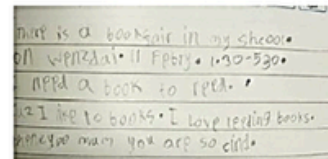 there is a bookfair in my shcool.
on wenzdai. 11 Febry. 1.30-530.
need a book to reed.
I like to books. I Love reyding books.
you mum you are so cind.